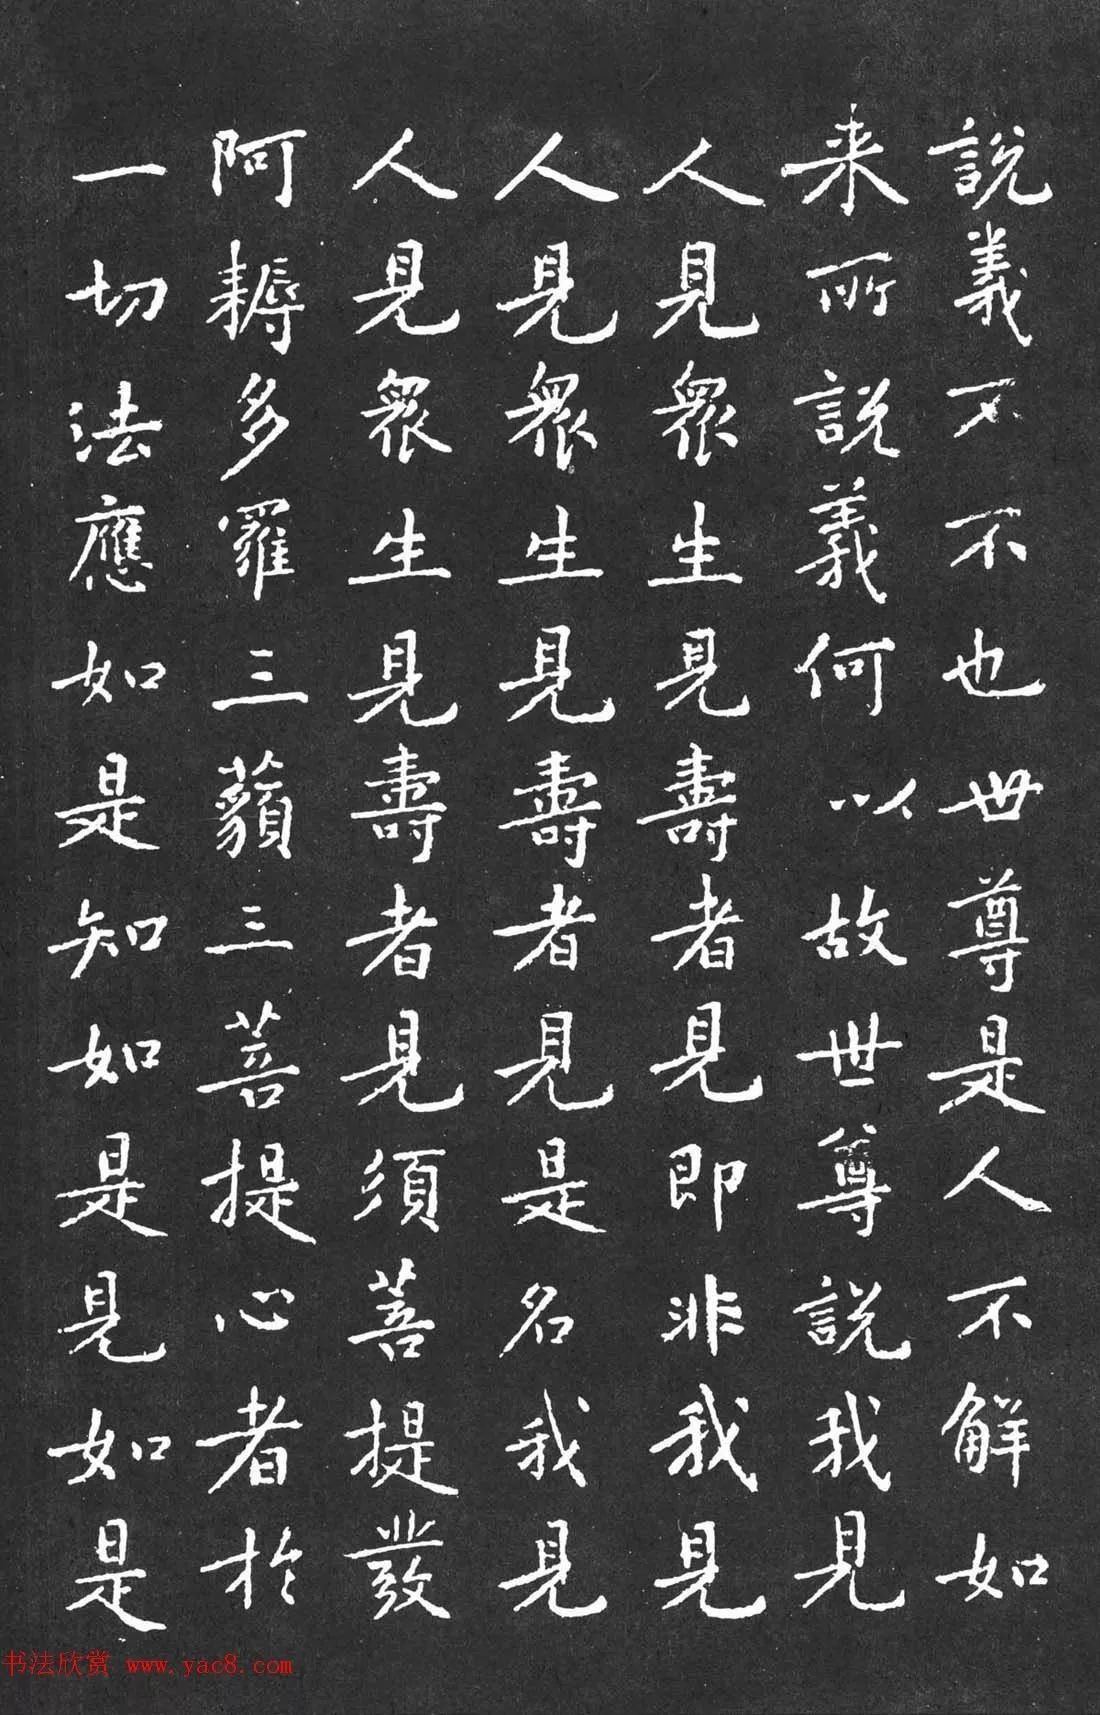 說義不不也世尊是人不解如
来所說義何以故世尊說我見
人見眾生見壽者見即非我見
人見眾生見壽者見是名我見
人見眾生見壽者見須菩提發
阿耨多羅三藐三菩提心者於
一切法應如是知如是見如是
书法欣赏 www.yac8.com